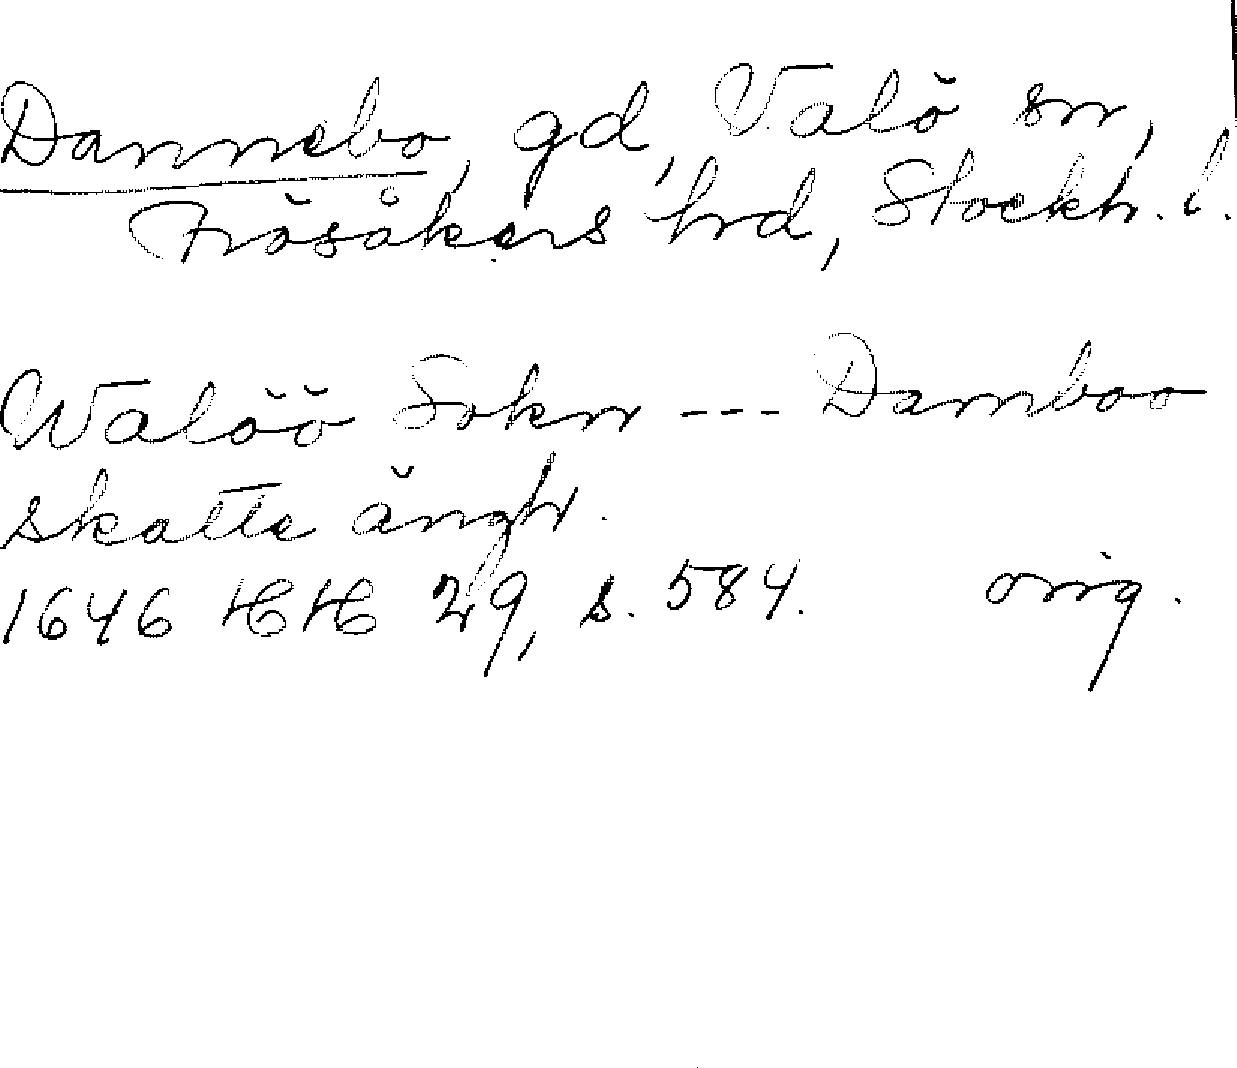 Dannebo, gd, Valö sn,
Frösåkers hrd, Stockh. l.
Walöö Sokn --- Damboo
skatte ängh.
1646 HH 29, s. 584. orig.